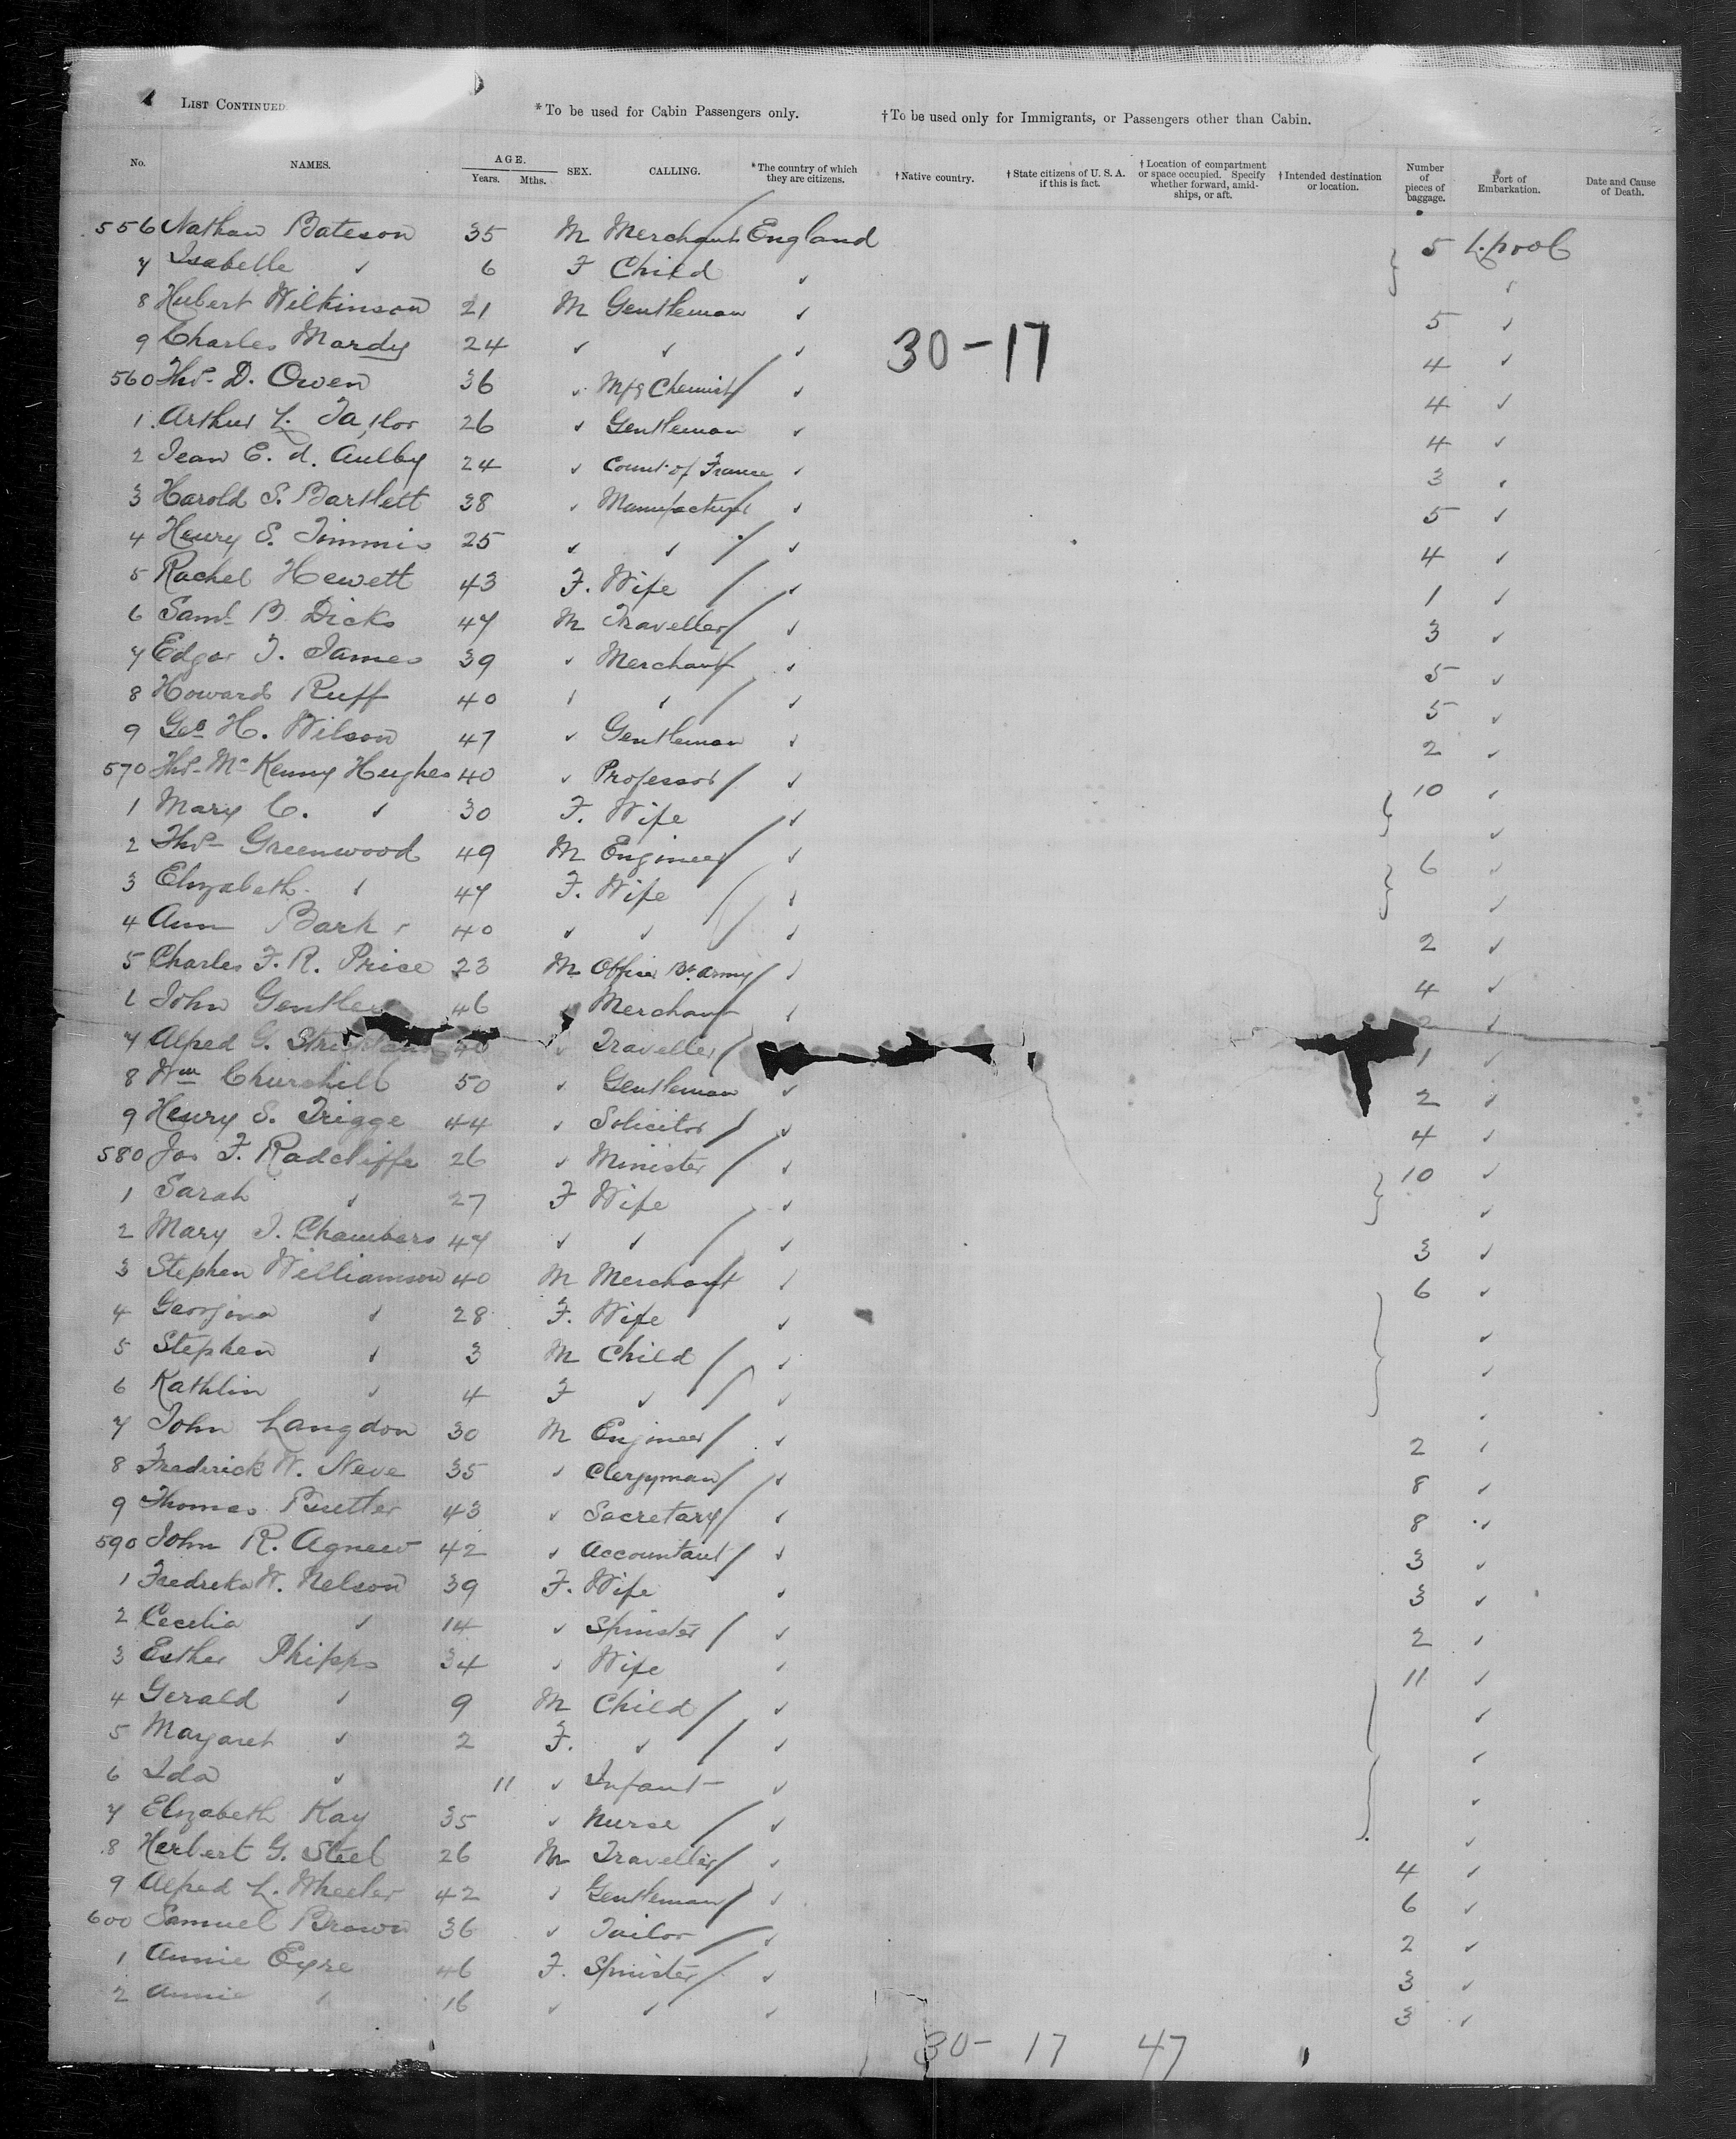 LIST CONTINUED. *To be used for Cabin Passengers only. †To be used only for Immigrants, or Passengers other than Cabin.
No. NAMES. AGE. Years. Mths. SEX. CALLING. *The country of which they are citizens. †Native country. †State citizens of U. S. A. if this is fact. †Location of compartment or space occupied. Specify whether forward, amidships, or aft. †Intended destination or location. Number of pieces of baggage. Port of Embarkation. Date and Cause of Death.
556 Nathan Bateson 35 M Merchant England 5 L.pool
7 Isabelle ✓ 6 F Child ✓ ✓
8 Hubert Wilkinson 21 M Gentleman ✓ 5 ✓
9 Charles Mardy 24 ✓ ✓ ✓ 4 ✓
30-17
560 Thos. D. Owen 36 ✓ Mfg Chemist ✓ 4 ✓
1 Arthur L. Taylor 26 ✓ Gentleman ✓ 4 ✓
2 Jean E. d. Aulby 24 ✓ Count of France ✓ 3 ✓
3 Harold S. Bartlett 38 ✓ Manufacturer ✓ 5 ✓
4 Henry S. Timmis 25 ✓ ✓ ✓ 4 ✓
5 Rachel Hewett 43 F. Wife ✓ 1 ✓
6 Saml. B. Dicks 47 M Traveller ✓ 3 ✓
7 Edgar T. James 39 ✓ Merchant ✓ 5 ✓
8 Howard Ruff 40 ✓ ✓ ✓ 5 ✓
9 Geo H. Wilson 47 ✓ Gentleman ✓ 2 ✓
570 Thos. Mc Kenny Hughes 40 ✓ Professor ✓ 10 ✓
1 Mary C. ✓ 30 F. Wife ✓ ✓
2 Thos. Greenwood 49 M Engineer ✓ 6 ✓
3 Elizabeth ✓ 47 F. Wife ✓ ✓
4 Ann 40 ✓ ✓ ✓ 2 ✓
5 Charles F. R. Price 23 M Officer Bt. Army ✓ 4 ✓
6 John Gentles 46 ✓ Merchant ✓ 2 ✓
7 Alfred G. 40 ✓ Traveller 1 ✓
8 Wm Churchill 50 ✓ Gentleman ✓ 2 ✓
9 Henry S. Trigge 44 ✓ Solicitor ✓ 4 ✓
580 Jas F. Radcliffe 26 ✓ Minister ✓ 10 ✓
1 Sarah ✓ 27 F Wife ✓ ✓
2 Mary J. Chambers 47 ✓ ✓ ✓ 3 ✓
3 Stephen Williamson 40 M Merchant ✓ 6 ✓
4 Georgina ✓ 28 F. Wife ✓ ✓
5 Stephen ✓ 3 M Child ✓ ✓
6 Kathlin ✓ 4 F ✓ ✓ ✓
7 John Langdon 30 M Engineer ✓ 2 ✓
8 Frederick W. Neve 35 ✓ Clergyman ✓ 8 ✓
9 Thomas Butler 43 ✓ Secretary ✓ 8 ✓
590 John R. Agnew 42 ✓ Accountant ✓ 3 ✓
1 Fredreka W. Nelson 39 F. Wife ✓ 3 ✓
2 Cecelia ✓ 14 ✓ Spinster ✓ 2 ✓
3 Esther Phipps 34 ✓ Wife ✓ 11 ✓
4 Gerald ✓ 9 M Child ✓ ✓
5 Margaret ✓ 2 F. ✓ ✓ ✓
6 Ida ✓ 11 ✓ Infant ✓ ✓
7 Elizabeth Kay 35 ✓ Nurse ✓ ✓
8 Herbert G. Steel 26 M Traveller ✓ 4 ✓
9 Alfred L. Wheeler 42 ✓ Gentleman ✓ 6 ✓
600 Samuel Brown 36 ✓ Tailor ✓ 2 ✓
1 Annie Eyre 46 F. Spinster ✓ 3 ✓
2 Annie ✓ 16 ✓ ✓ ✓ 3 ✓
30- 17 47